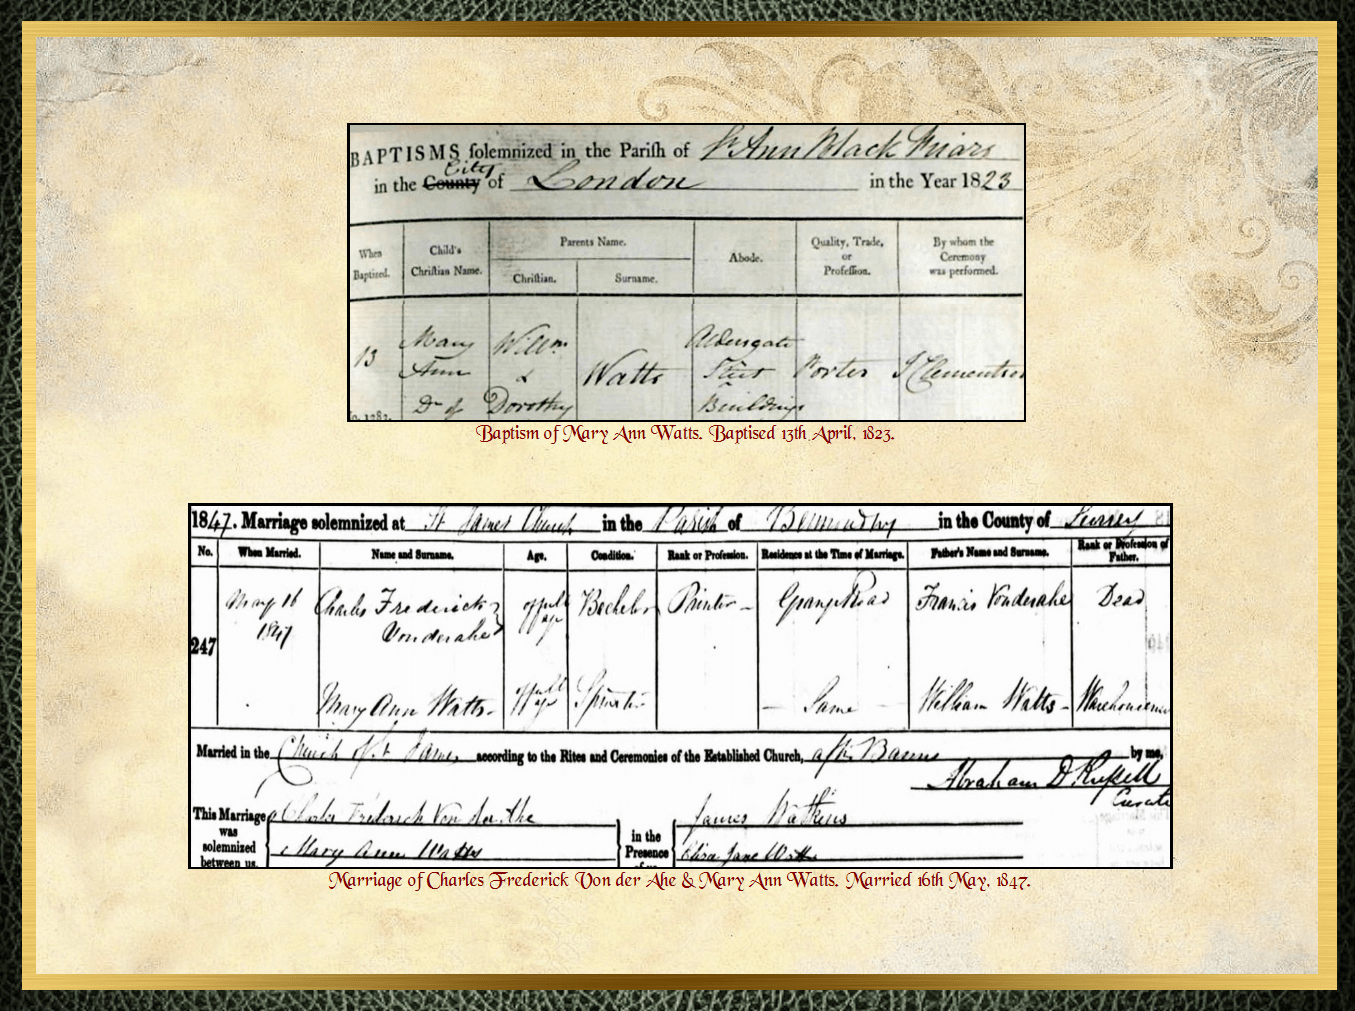 BAPTISMS solemnized in the Parish of St Ann Black Friars
City
in the County of London in the Year 1823
When Baptized.
Child's Christian Name.
Parents Name.
Christian.
Surname.
Abode.
Quality, Trade, or Profession.
By whom the Ceremony was performed.
13
Mary
Ann
Dr of
Willm
&
Dorothy
Watts
Aldersgate
Street
Buildings
Porter
J Clementson
Baptism of Mary Ann Watts. Baptised 13th April, 1823.
1847. Marriage solemnized at St James Church in the Parish of Bermondsey in the County of Surrey
No.
When Married.
Name and Surname.
Age.
Condition.
Rank or Profession.
Residence at the Time of Marriage.
Father's Name and Surname.
Rank or Profession of Father.
247
May 16
1847
Charles Frederick
Vonderahe
of full
age
Bachelor
Printer
Grange Road
Francis Vonderahe
Dead
Mary Ann Watts
of full
age
Spinster
Same
William Watts
Warehouseman
Married in the Church of St James according to the Rites and Ceremonies of the Established Church, after Banns by me,
Abraham D Russell
Curate
This Marriage was solemnized between us,
Charles Frederick Von der Ahe
Mary Ann Watts
in the Presence of us,
James Watkins
Eliza Jane Watts
Marriage of Charles Frederick Von der Ahe & Mary Ann Watts. Married 16th May, 1847.